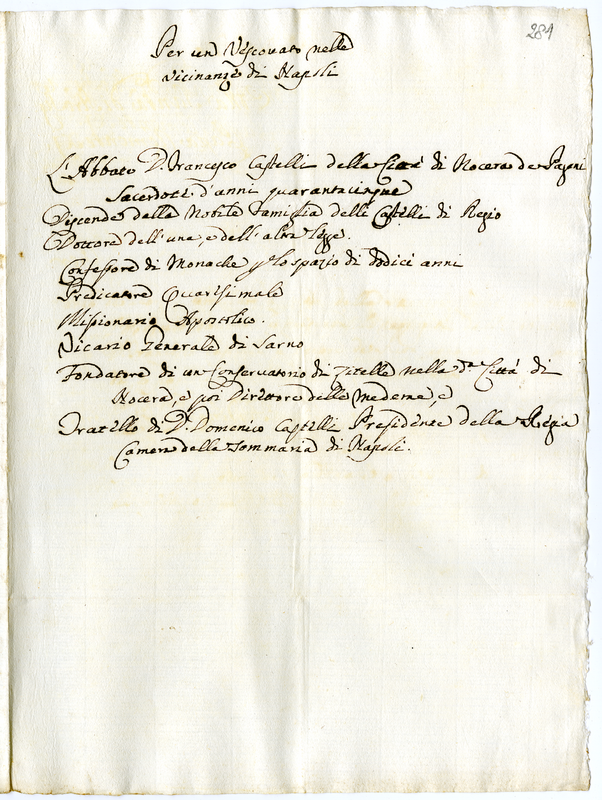 284
Per un Vescovato nelle
vicinanze di Napoli
L'Abbate D. Francesco Castelli della Città di Nocera de Pagani
Sacerdote d'anni quarantacinque
Discende dalla Nobile famiglia delli Castelli di Regio
Dottore dell'una, e dell'altra legge.
Confessore di Monache p lo spazio di dodici anni
Predicatore Quaresimale
Missionario Apostolico.
Vicario Generale di Sarno
Fondatore di un Conservatorio di zitelle nella da Città di
Nocera, e poi Direttore delle medeme, e
Fratello di D. Domenico Castelli Presidente della Regia
Camera della Sommaria di Napoli.